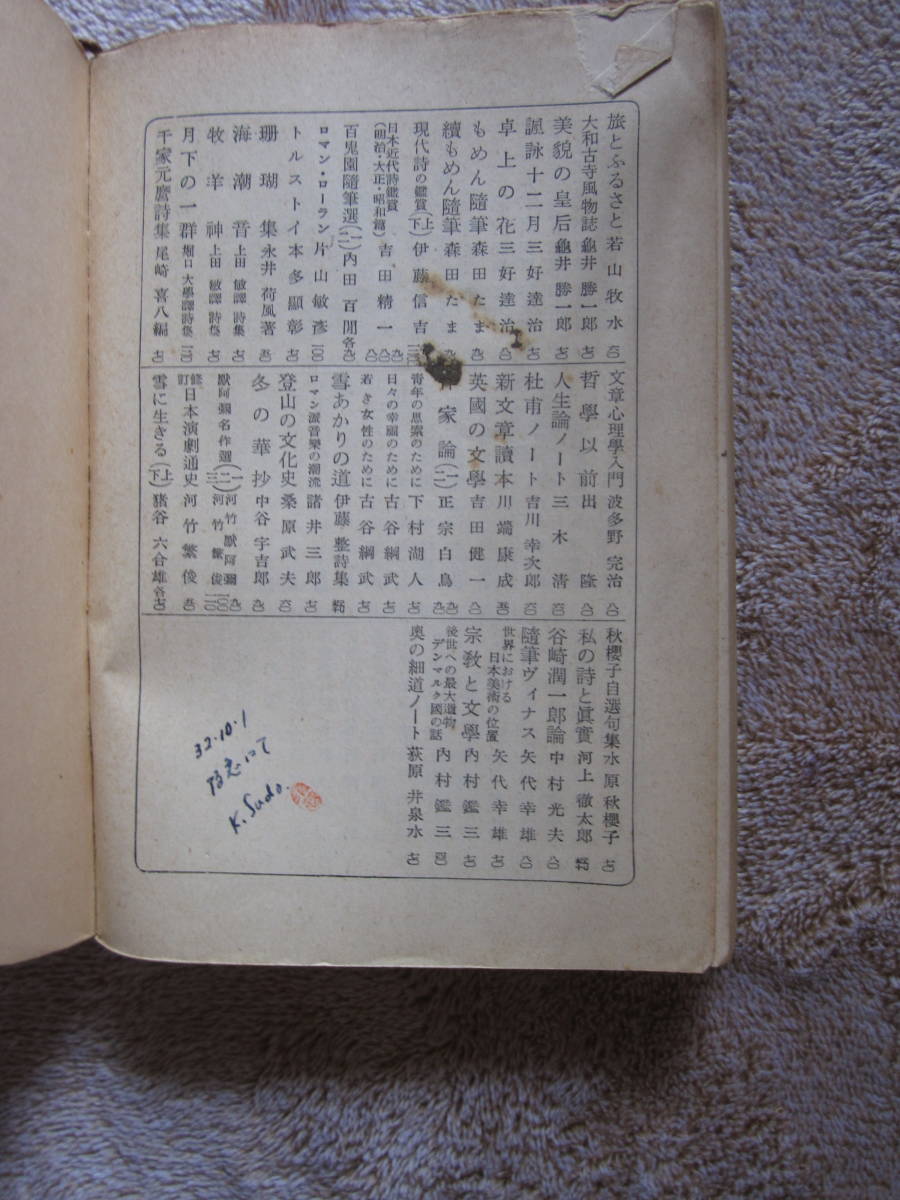 旅とふるさと 若山牧水 六〇
大和古寺風物誌 龜井勝一郎 七〇
美貌の皇后 龜井勝一郎 七〇
諷詠十二月 三好達治 七〇
卓上の花 三好達治 八〇
もめん隨筆 森田たま 九〇
續もめん隨筆 森田たま
現代詩の鑑賞(上)(下) 伊藤信吉
日本近代詩鑑賞(明治・大正・昭和篇) 吉田精一
百鬼園隨筆選(一)(二) 内田百閒 各九〇
ロマン・ローラン 片山敏彦 一〇〇
トルストイ 本多顯彰 七〇
珊瑚集 永井荷風著 五〇
海潮音 上田敏譯詩集 七〇
牧羊神 上田敏譯詩集 七〇
月下の一群 堀口大學譯詩集 一二〇
千家元麿詩集 尾崎喜八編 七〇
文章心理學入門 波多野完治 八〇
哲學以前 出隆 八〇
人生論ノート 三木清 六〇
杜甫ノート 吉川幸次郎 六〇
新文章讀本 川端康成 五〇
英國の文學 吉田健一 八〇
家論(一)(二) 正宗白鳥
青年の思索のために 下村湖人 七〇
日々の幸福のために 古谷綱武 七〇
若き女性のために 古谷綱武 七〇
雪あかりの道 伊藤整詩集
ロマン派音樂の潮流 諸井三郎 七〇
登山の文化史 桑原武夫 六〇
冬の華抄 中谷宇吉郎 九〇
默阿彌名作選(一)(二)(三) 河竹默阿彌 河竹繁俊
修訂 日本演劇通史 河竹繁俊 五〇
雪に生きる(上)(下) 猪谷六合雄 各七〇
秋櫻子自選句集 水原秋櫻子 七〇
私の詩と眞實 河上徹太郎
谷崎潤一郎論 中村光夫 八〇
隨筆ヴィナス 矢代幸雄 八〇
世界における日本美術の位置 矢代幸雄 七〇
宗敎と文學 内村鑑三 七〇
後世への最大遺物 デンマルク國の話 内村鑑三 四〇
奥の細道ノート 荻原井泉水 七〇
32.10.1
にて
K. Sudo.